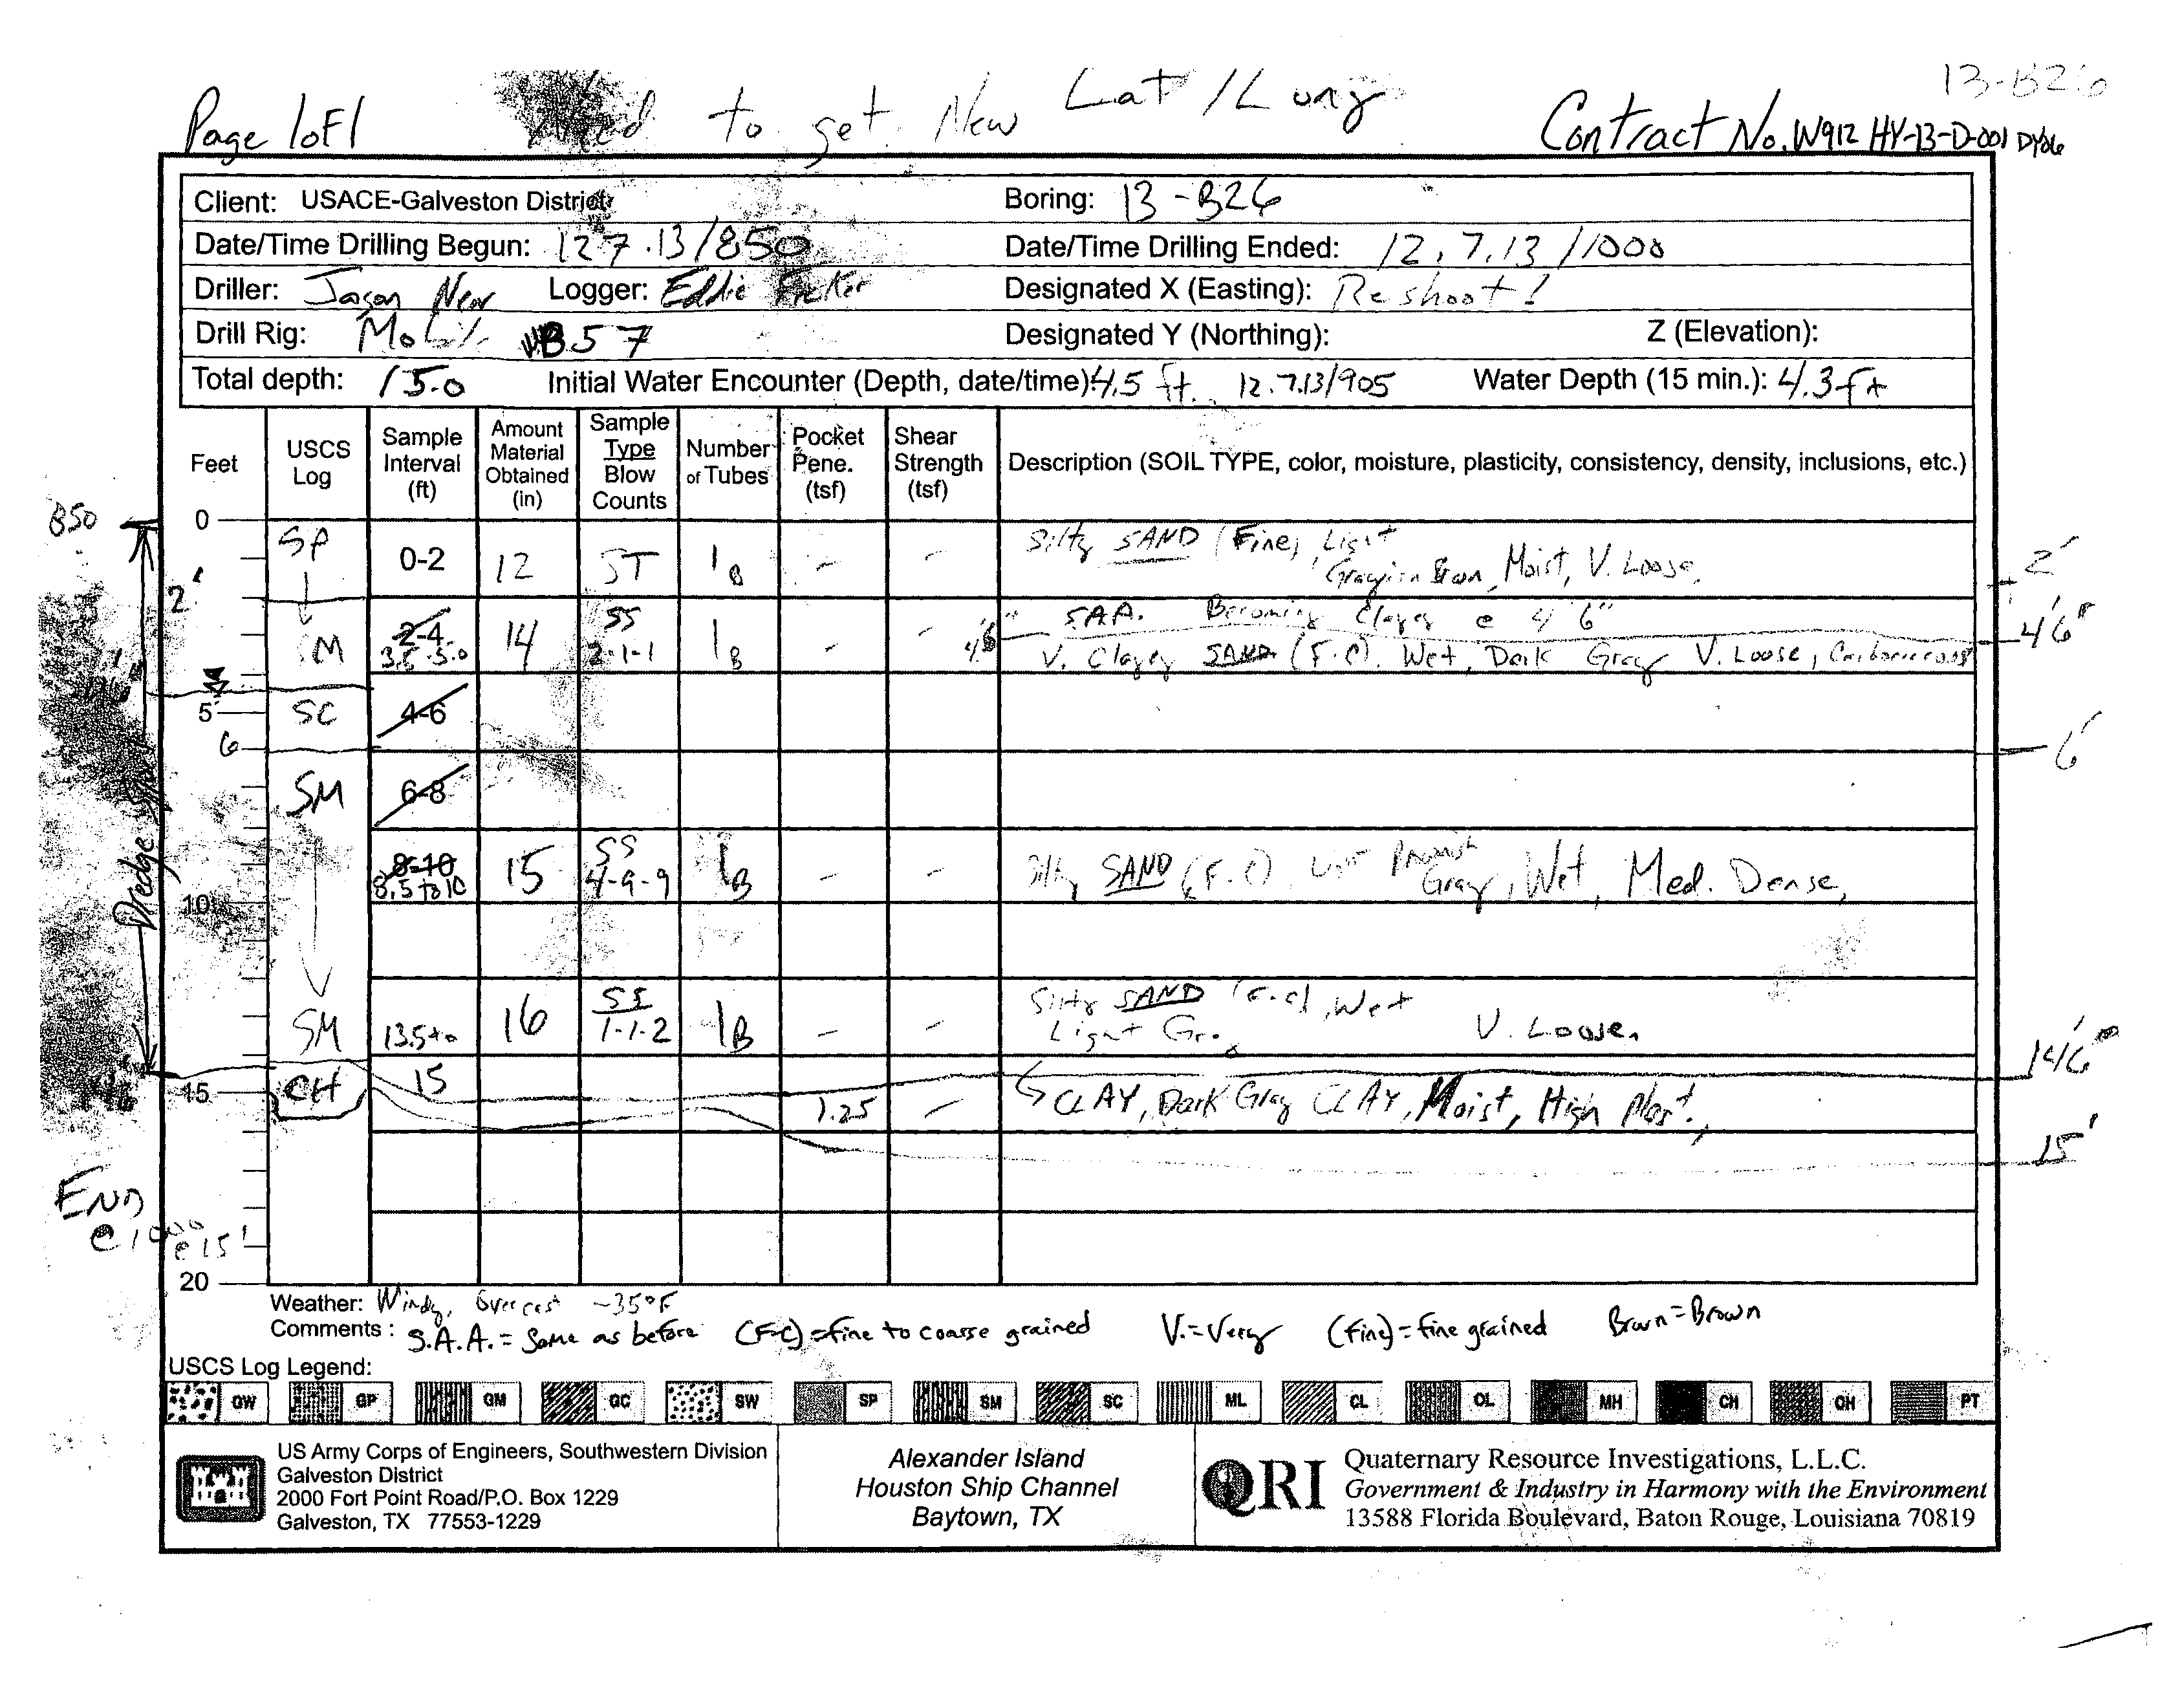 13-B26
Page 1 of 1 to get New Lat / Long Contract No. W912 HY-13-D-001 DY06
Client: USACE-Galveston District Boring: 13-B26
Date/Time Drilling Begun: 12.7.13/850 Date/Time Drilling Ended: 12.7.13/1000
Driller: Jason Logger: Eddie Designated X (Easting): Reshoot!
Drill Rig: Mobile B57 Designated Y (Northing): Z (Elevation):
Total depth: 15.0 Initial Water Encounter (Depth, date/time) 4.5 ft. 12.7.13/905 Water Depth (15 min.): 4.3 ft
Feet USCS Log Sample Interval (ft) Amount Material Obtained (in) Sample Type Blow Counts Number of Tubes Pocket Pene. (tsf) Shear Strength (tsf) Description (SOIL TYPE, color, moisture, plasticity, consistency, density, inclusions, etc.)
850 0
SP 0-2 12 ST 1B - - Silty SAND (Fine) Light
Grayish Brown, Moist, V. Loose, 2'
2' SS S.A.A. Becoming Clayey @ 4' 6"
SM 2-4 3.5-5.0 14 2-1-1 1B - - 4'6" V. Clayey SAND (F-C). Wet, Dark Gray V. Loose, Carbonaceous 4'6"
5 SC 4-6
6 6'
SM 6-8
Dredge
8-10 SS
8.5 to 10 15 4-9-9 1B - - Silty SAND (F-C), Light Brownish Gray, Wet, Med. Dense,
10
SM 13.5 to 16 SS 1-1-2 1B - - Silty SAND (F-C), Wet
Light Gray V. Loose,
14'6" 14'6"
15 CH 15 1.25 - CLAY, Dark Gray CLAY, Moist, High Plast.,
15'
END
@ 1000
@ 15'
20
Weather: Windy, Overcast ~35°F
Comments: S.A.A. = Same as before (F-C) = fine to coarse grained V. = Very (fine) = fine grained Brwn = Brown
USCS Log Legend:
GW GP GM GC SW SP SM SC ML CL OL MH CH OH PT
US Army Corps of Engineers, Southwestern Division
Galveston District
2000 Fort Point Road/P.O. Box 1229
Galveston, TX 77553-1229
Alexander Island
Houston Ship Channel
Baytown, TX
QRI
Quaternary Resource Investigations, L.L.C.
Government & Industry in Harmony with the Environment
13588 Florida Boulevard, Baton Rouge, Louisiana 70819